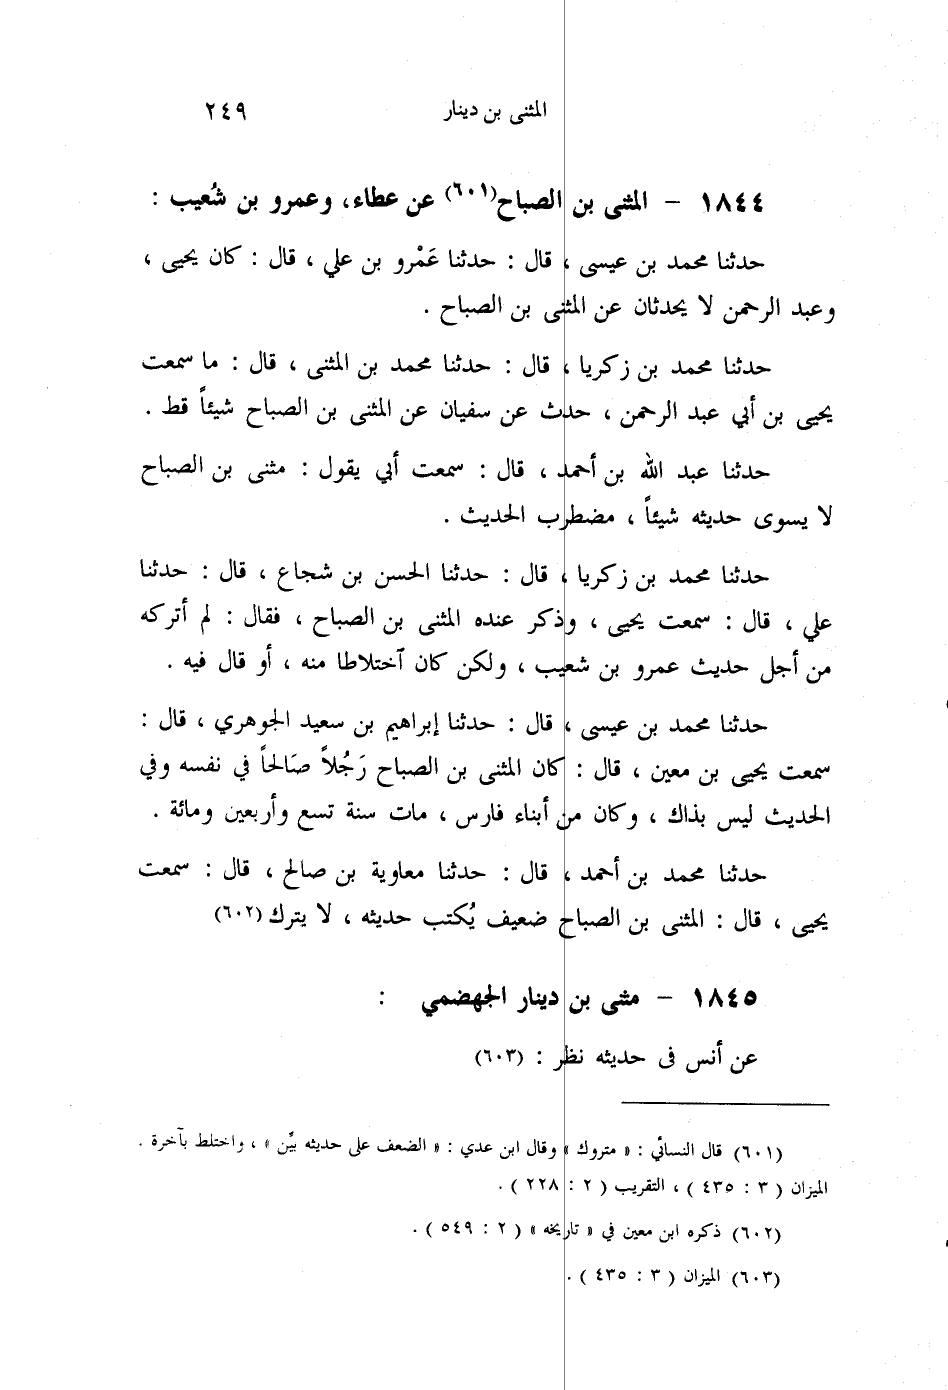 المثنى بن دينار ٢٤٩
١٨٤٤ - المثنى بن الصباح(٦٠١) عن عطاء، وعمرو بن شُعيب :
حدثنا محمد بن عيسى ، قال : حدثنا عَمْرو بن علي ، قال : كان يحيى ،
وعبد الرحمن لا يحدثان عن المثنى بن الصباح .
حدثنا محمد بن زكريا ، قال : حدثنا محمد بن المثنى ، قال : ما سمعت
يحيى بن أبي عبد الرحمن ، حدث عن سفيان عن المثنى بن الصباح شيئاً قط .
حدثنا عبد الله بن أحمد ، قال : سمعت أبي يقول : مثنى بن الصباح
لا يسوى حديثه شيئاً ، مضطرب الحديث .
حدثنا محمد بن زكريا ، قال : حدثنا الحسن بن شجاع ، قال : حدثنا
علي ، قال : سمعت يحيى ، وذكر عنده المثنى بن الصباح ، فقال : لم أتركه
من أجل حديث عمرو بن شعيب ، ولكن كان آختلاطا منه ، أو قال فيه .
حدثنا محمد بن عيسى ، قال : حدثنا إبراهيم بن سعيد الجوهري ، قال :
سمعت يحيى بن معين ، قال : كان المثنى بن الصباح رَجُلاً صَالحاً في نفسه وفي
الحديث ليس بذاك ، وكان من أبناء فارس ، مات سنة تسع وأربعين ومائة .
حدثنا محمد بن أحمد ، قال : حدثنا معاوية بن صالح ، قال : سمعت
يحيى ، قال : المثنى بن الصباح ضعيف يُكتب حديثه ، لا يترك (٦٠٢)
١٨٤٥ - مثنى بن دينار الجهضمي :
عن أنس فى حديثه نظر : (٦٠٣)
(٦٠١) قال النسائي : « متروك » وقال ابن عدي : « الضعف على حديثه بيِّن » ، واختلط بآخرة .
الميزان ( ٣ : ٤٣٥ ) ، التقريب ( ٢ : ٢٢٨ ) .
(٦٠٢) ذكره ابن معين في « تاريخه » ( ٢ : ٥٤٩ ) .
(٦٠٣) الميزان ( ٣ : ٤٣٥ ) .